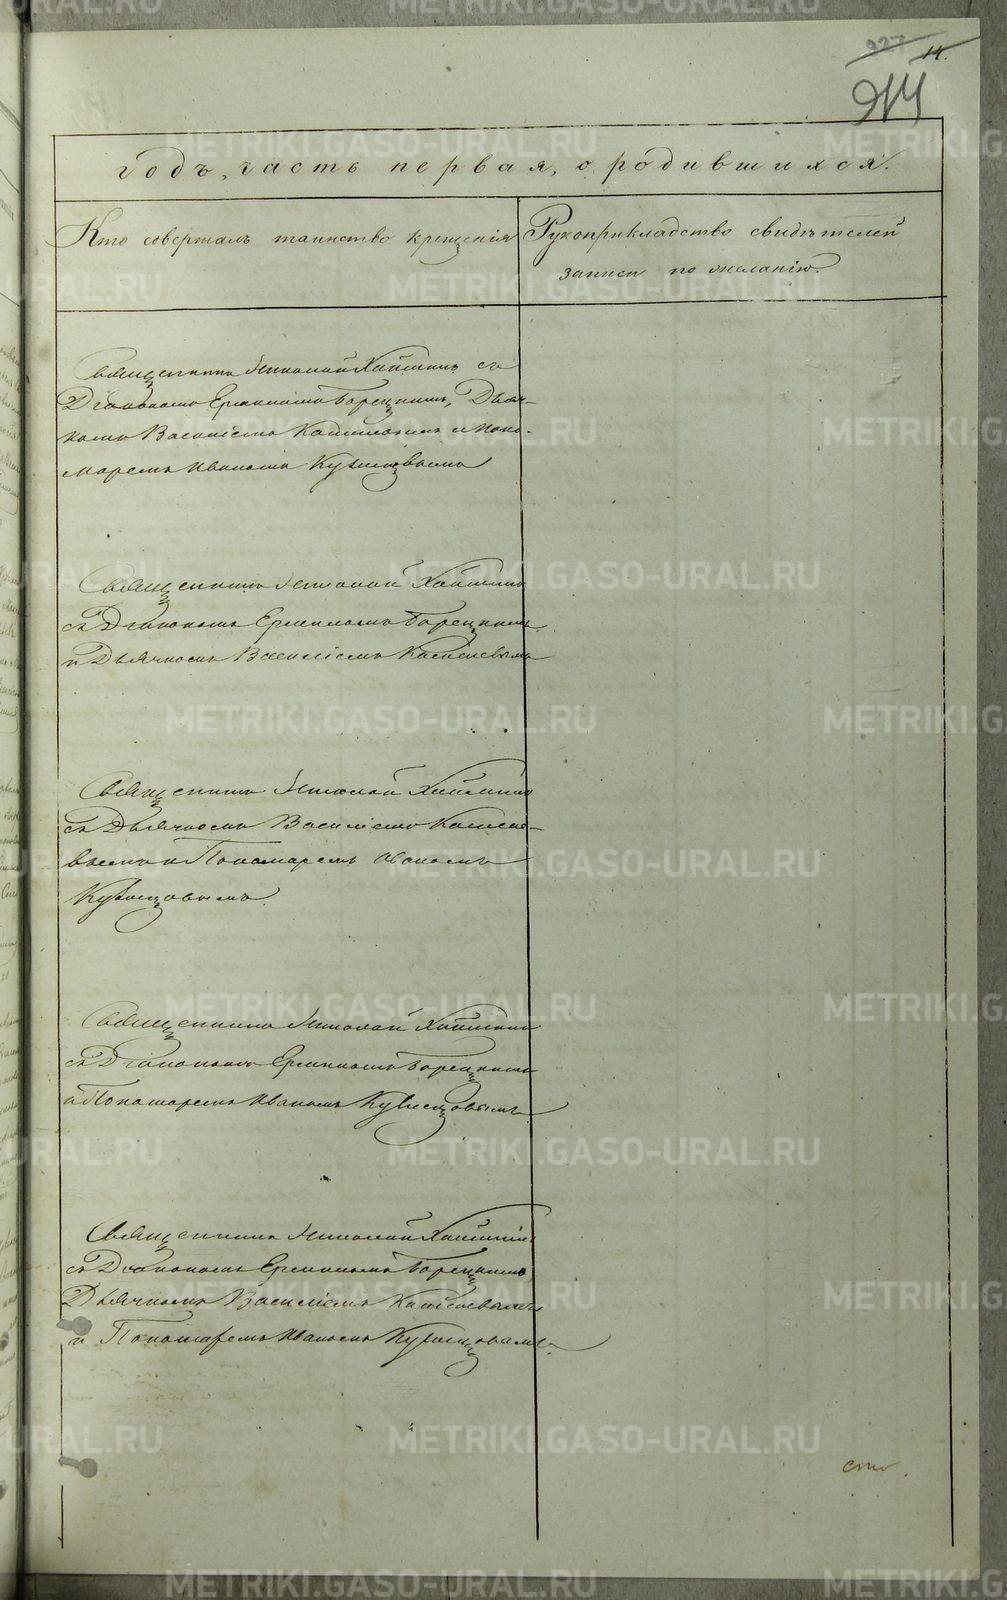 14.
914
годъ, часть первая, о родившихся.
Кто совершалъ таинство крещенія
Рукоприкладство свидѣтелей
записи по желанію.
Священникъ Николай съ
Діакономъ Борецкимъ, Дьяч-
комъ Василіемъ и Поно-
маремъ Иваномъ Кузнецовымъ
Священникъ Николай
съ Діакономъ Борецкимъ
и Дьячкомъ Василіемъ
Священникъ Николай
съ Дьячкомъ Василіемъ
вымъ и Пономаремъ Иваномъ
Кузнецовымъ.
Священникъ Николай
съ Діакономъ Борецкимъ
и Пономаремъ Иваномъ Кузнецовымъ
Священникъ Николай
съ Діакономъ Борецкимъ
Дьячкомъ Василіемъ
и Пономаремъ Иваномъ Кузнецовымъ.
METRIKI.GASO-URAL.RU